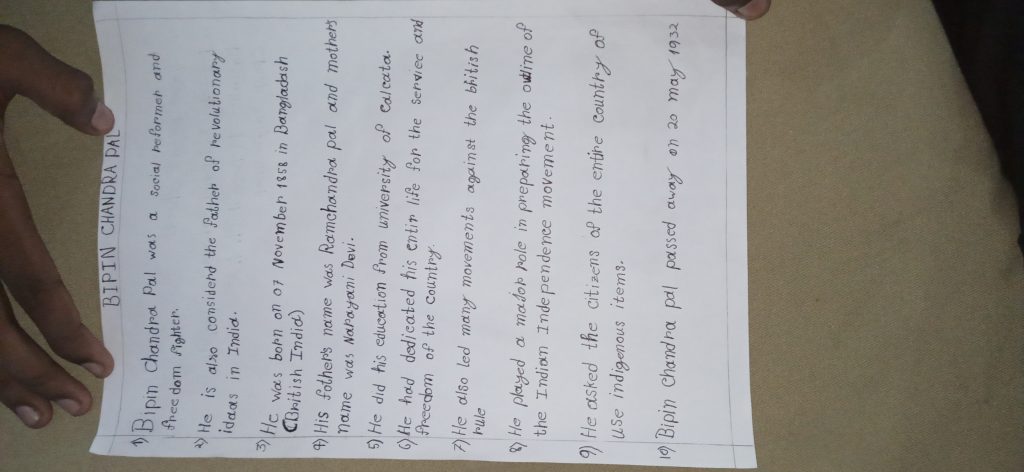 BIPIN CHANDRA PAL
1) Bipin Chandra Pal was a social reformer and
freedom fighter.
2) He is also considerd the father of revolutionary
idaas in India.
3) He was born on 07 November 1858 in Bangladash
(British India)
4) His father's name was Ramchandra pal and mothers
name was Narayani Devi.
5) He did his education from university of Calcata.
6) He had dedicated his entir life for the service and
freedom of the country.
7) He also led many movements against the british
rule
8) He played a mador role in preparing the outline of
the Indian Independence movement.
9) He asked the citizens of the entire country of
use indigenous items.
10) Bipin Chandra pal passed away on 20 may 1932